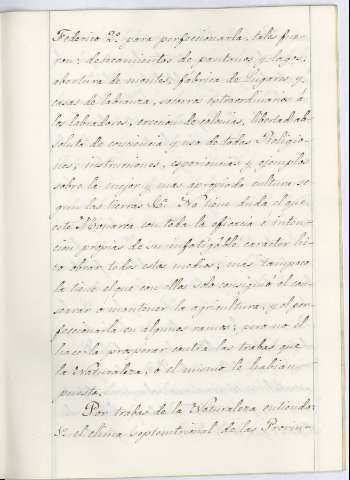 Federico 2º para perfeccionarla, tales fue-
ron: desecamientos de pantanos y lagos,
abertura de montes, fabrica de Lugares y
casas de labranza, socorros extraordinarios á
los labradores, ereccion de colonias, libertad ab-
soluta de conciencia y uso de todas Religio-
nes, instrucciones, esperiencias y ejemplos
sobre la mejor y mas apropiada cultura se-
gun las tierras &ª. No tiene duda el que
este Monarca con toda la eficacia é inten-
cion propias de su infatigable carácter hi-
zo obrar todos estos medios; mas tampoco
la tiene el que con ellos solo consiguió el con-
servar o mantener la agricultura, y el per-
feccionarla en algunos ramos; pero no el
hacerla prosperar contra las trabas que
la Naturaleza, ó el mismo le habian
puesto.
Por trabas de la Naturaleza entiendo:
1º el clima septentrional de las Provin-